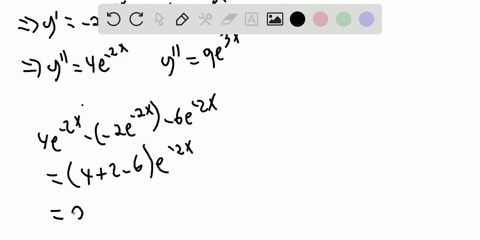 ⇒ y' = -2
⇒ y'' = 4e^{-2x} y'' = 9e^{3x}
4e^{-2x} - (-2e^{-2x}) - 6e^{-2x}
= (4+2-6)e^{-2x}
=